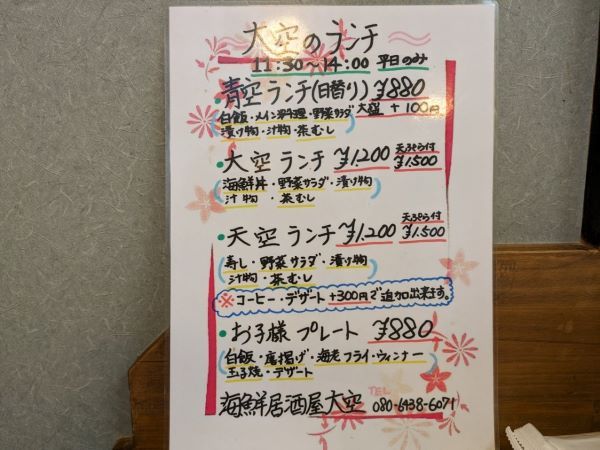 大空のランチ
11:30~14:00 平日のみ
・青空ランチ(日替り) ¥880
(白飯・メイン料理・野菜サラダ 大盛 +100円
漬け物・汁物・茶むし)
・大空ランチ ¥1,200 天ぷら付 ¥1,500
(海鮮丼・野菜サラダ・漬け物
汁物・茶むし)
・天空ランチ ¥1,200 天ぷら付 ¥1,500
(寿し・野菜サラダ・漬け物
汁物・茶むし)
※コーヒー・デザート +300円で追加出来ます。
・お子様プレート ¥880
(白飯・唐揚げ・海老フライ・ウィンナー
玉子焼・デザート)
TEL
海鮮居酒屋大空 080-6938-6071